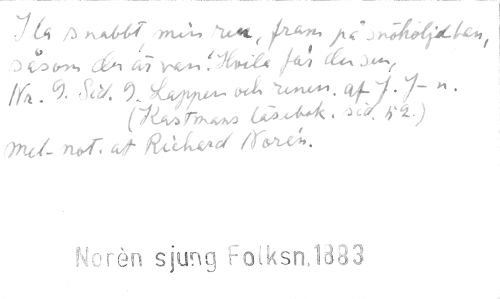 Ila snabbt, min ren, fram på snöhöljd ban,
såsom du är van! Hvila får du sen,
Nr. 9. Sid. 9. Lappen och renen. af J. J-n.
(Kastmans läsebok. sid. 52.)
Mel-not. af Richard Norén.
Norèn sjung Folksn. 1883